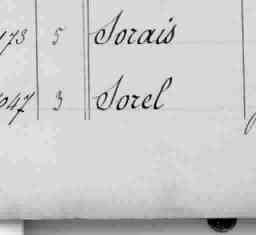 173 5 Sorais
047 3 Sorel